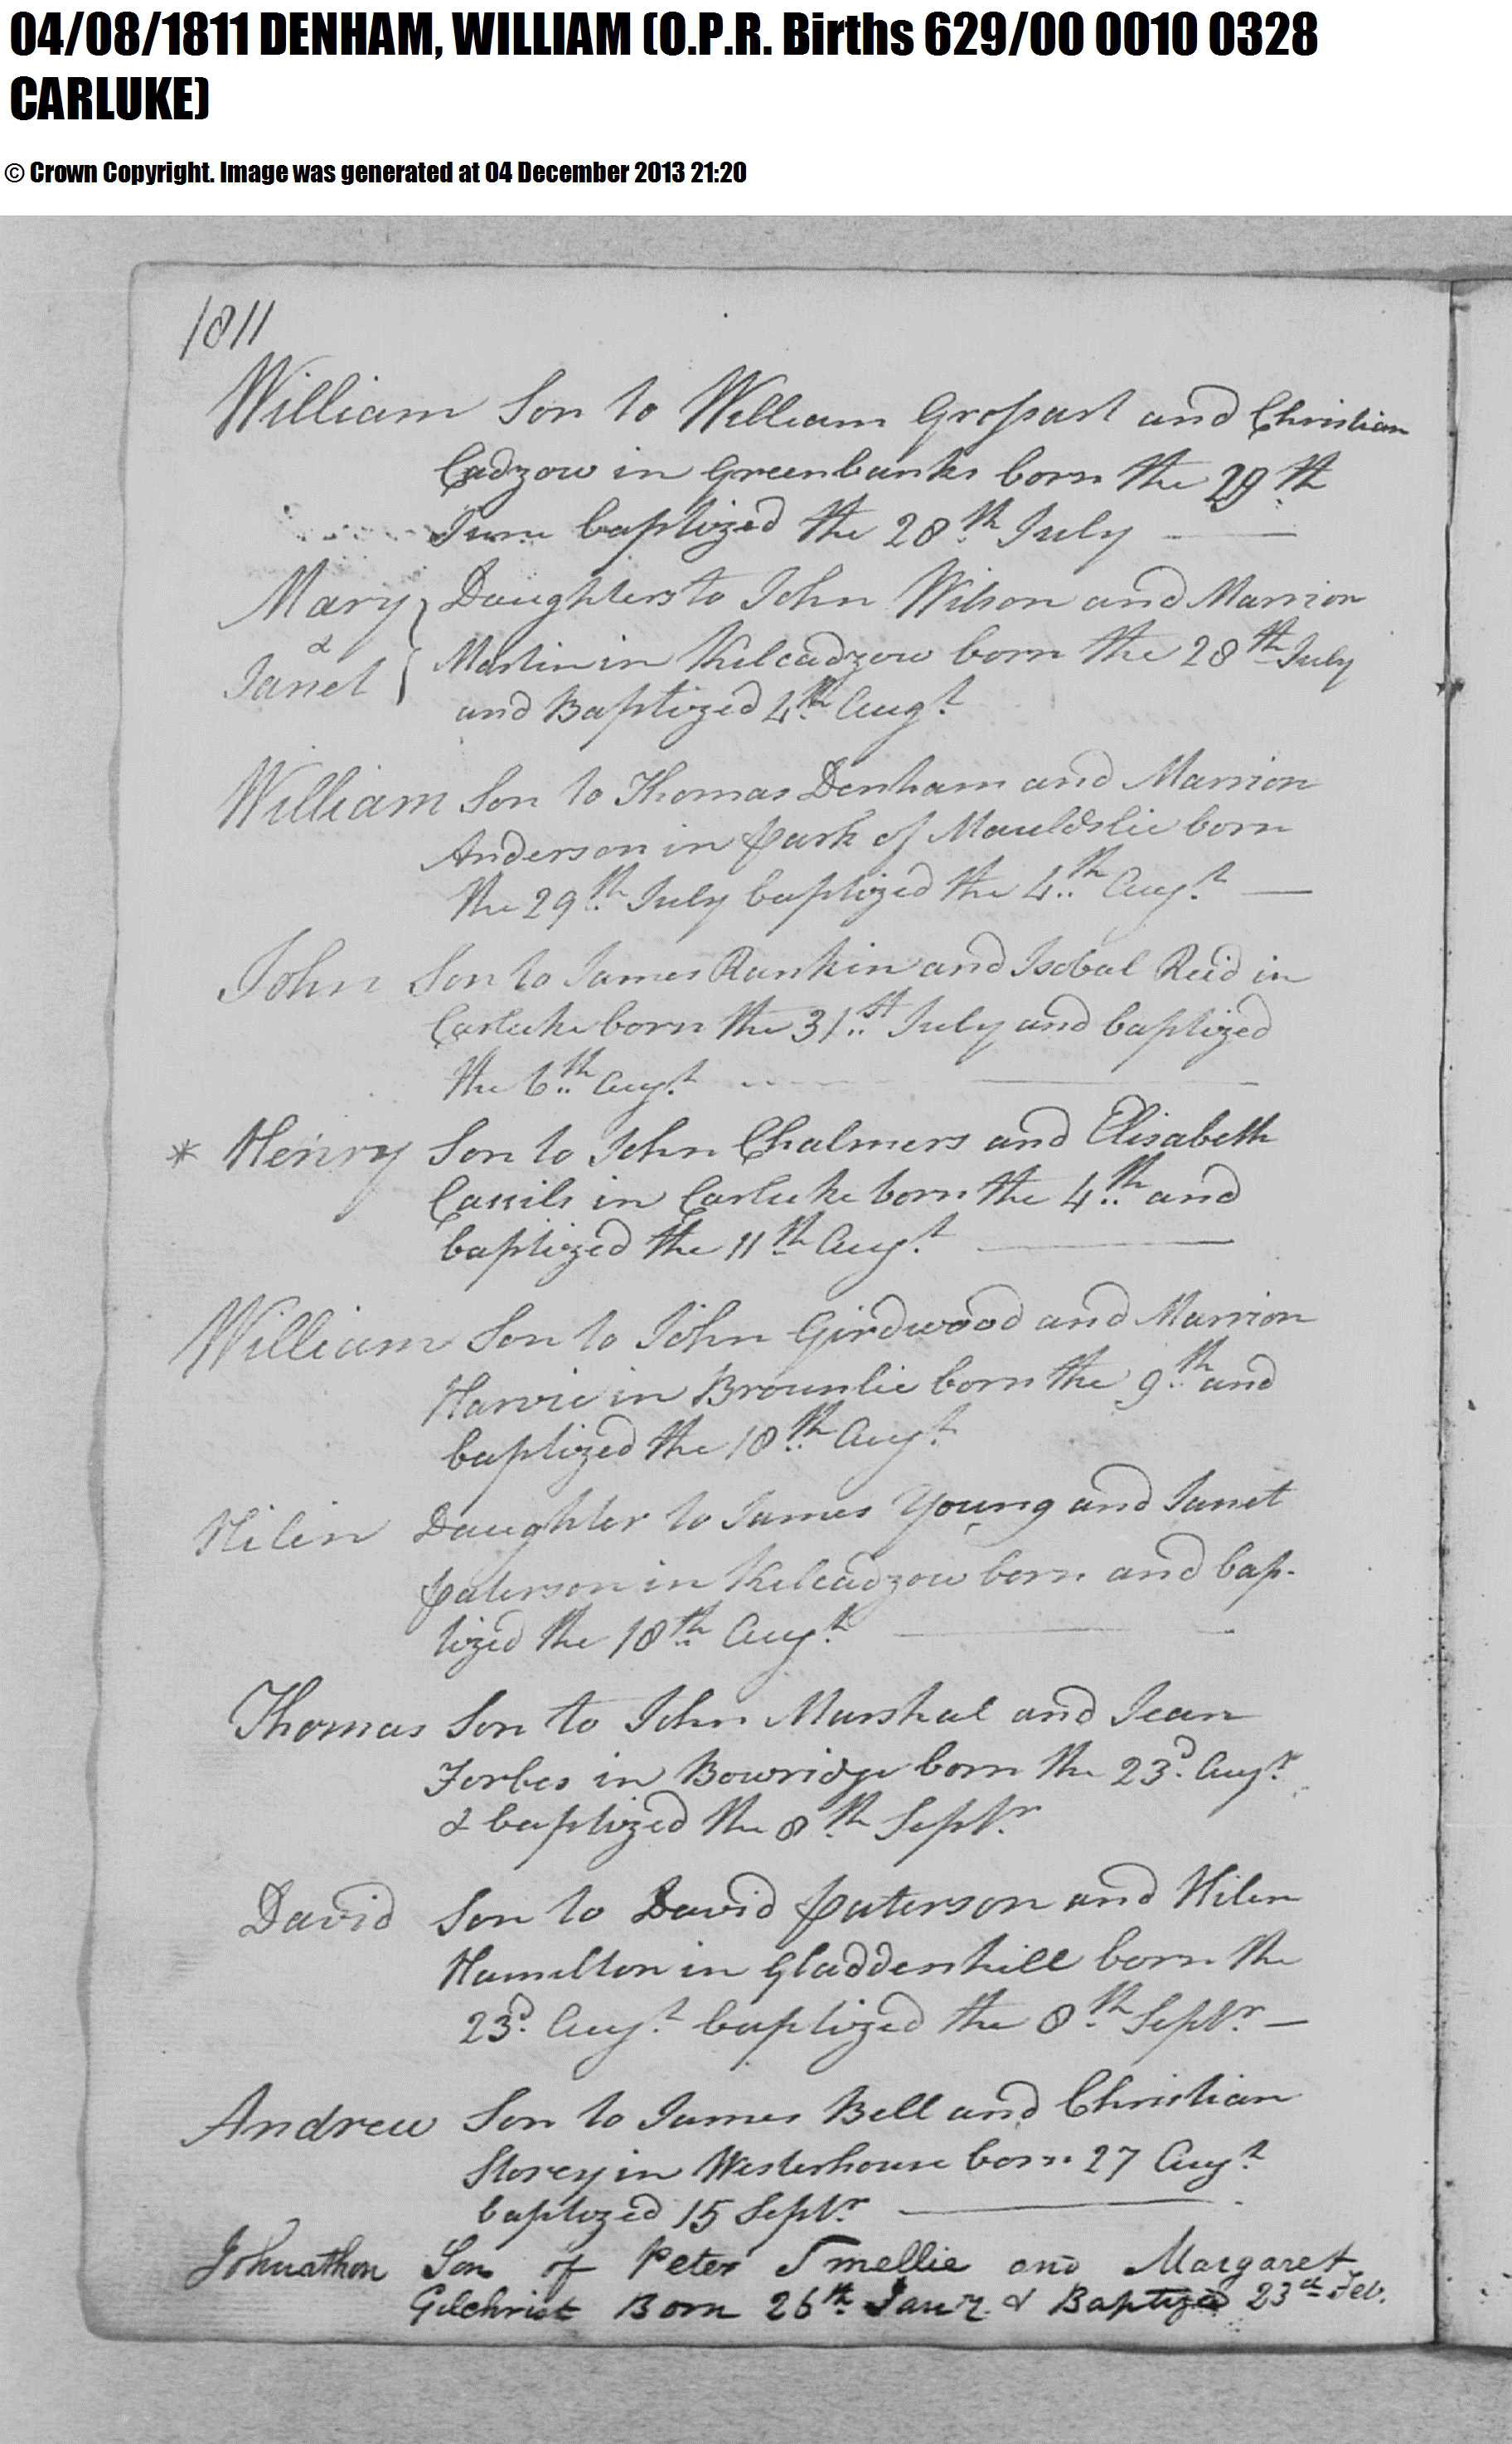 04/08/1811 DENHAM, WILLIAM (O.P.R. Births 629/00 0010 0328
CARLUKE)
© Crown Copyright. Image was generated at 04 December 2013 21:20
1811
William Son to William Grossart and Christian
Cadzow in Greenbanks born the 29th
June baptized the 28th July
Mary Daughters to John Wilson and Marrion
& Janet Martin in Kilcadzow born the 28th July
and Baptized 4th Augt
William Son to Thomas Denham and Marrion
Anderson in park of Mauldslie born
the 29th July baptized the 4th Augt
John Son to James Rankin and Isobal Reid in
Carluke born the 31st July and baptized
the 6th Augt
* Henry Son to John Chalmers and Elisabeth
Cassils in Carluke born the 4th and
baptized the 11th Augt
William Son to John Girdwood and Marrion
Harvie in Brounlie born the 9th and
baptized the 18th Augt
Hilen Daughter to James Young and Janet
paterson in Kilcadzow born and bap-
tized the 18th Augt
Thomas Son to John Marshal and Jean
Forbes in Bowridge born the 23d Augt
& baptized the 8th Septr
David Son to David paterson and Hilen
Hamilton in Gladdenhill born the
23d Augt baptized the 8th Septr
Andrew Son to James Bell and Christian
Storey in Westerhouse born 27 Augt
baptized 15 Septr
Johnathon Son of Peter Smellie and Margaret
Gilchrist Born 26th Janr & Baptized 23d Feb.